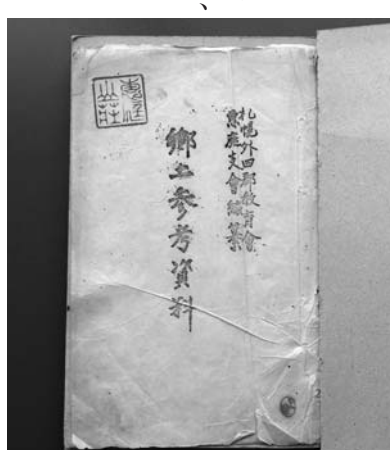 、
札幌外四郡教育會
恵庭支會編纂
郷土参考資料